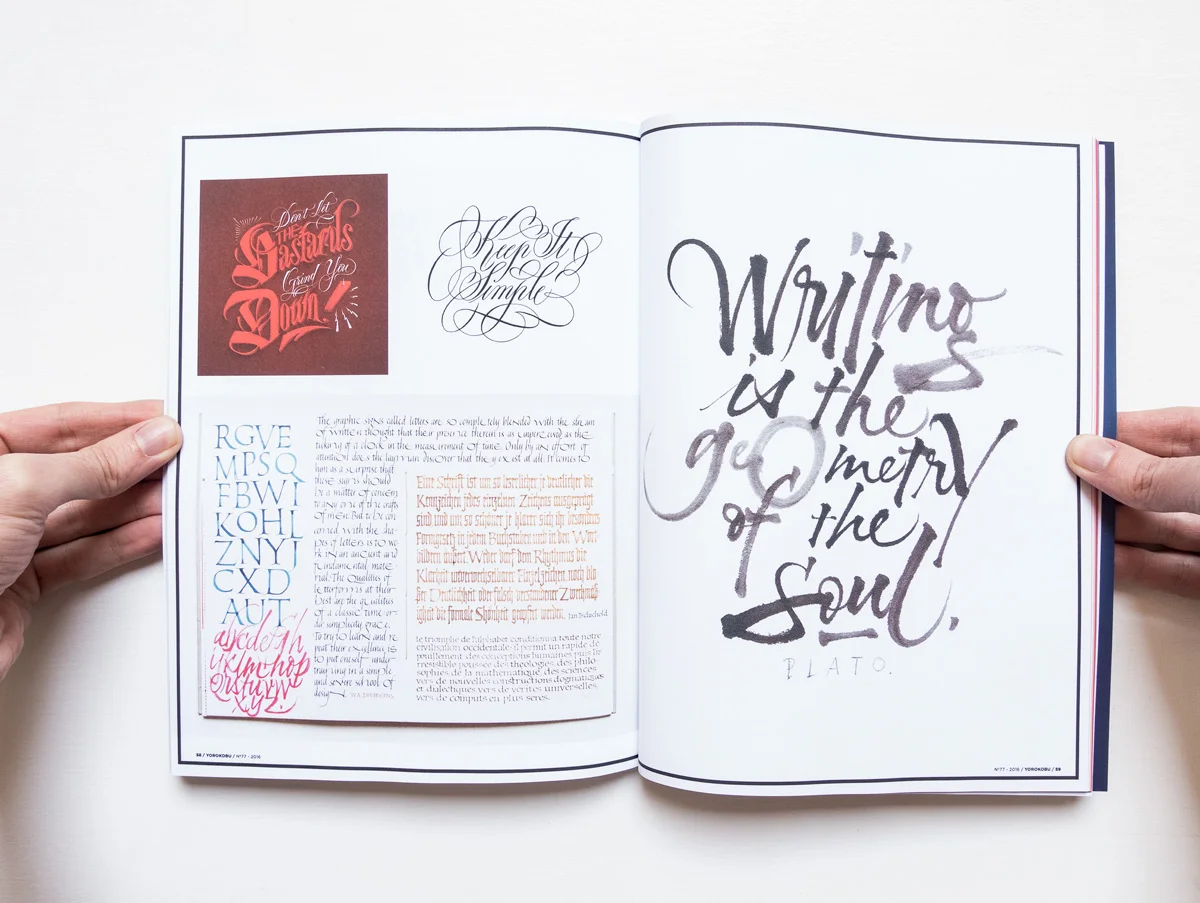 Don't Let
THE
Bastards
Grind You
Down!
Keep It
Simple
RGVE
MPSQ
FBWI
KOHL
ZNYJ
CXD
AUT
The graphic signs called letters are so completely blended with the stream
of written thought that their presence therein is as unperceived as the
ticking of a clock in the measurement of time. Only by an effort of
attention does the layman discover that they exist at all. It comes to
him as a surprise that
these signs should
be a matter of concern
to any one of the crafts
of men. But to be con
cerned with the sha
pes of letters is to wo
rk in an ancient and
fundamental mate
rial. The Qualities of
letterform is at their
best are the qualities
of a classic time: or
der simplicity, grace.
To try to learn and re
peat their excellence is
to put oneself under
training in a simple
and severe school of
design
W.A. DWIGGINS
Eine Schrift ist um so leserlicher je deutlicher die
Kennzeichen jedes einzelnen Zeichens ausgeprägt
sind und um so schöner je klarer sich ihr besonderes
Formgesetz in jedem Buchstaben und in den Wort
bildern äußert Weder darf dem Rhythmus die
Klarheit unverwechselbarer Einzelzeichen noch blo
ßer Deutlichkeit oder falsch verstandener Zweckmäß
igkeit die formale Schönheit geopfert werden. Jan Tschichold
le triomphe de l'alphabet conditionna toute notre
civilisation occidentale. il permit un rapide de
pouillement des conceptions humaines puis l'ir
résistible poussée des théologies, des philo-
sophies de la mathématique, des sciences
vers de nouvelles constructions dogmatiques
et dialectiques vers de vérités universelles,
vers de computs en plus seres.
58 / YOROKOBU / Nº77 - 2016
Writing
is the
geOmetry
of the
soul.
PLATO.
Nº77 - 2016 / YOROKOBU / 59